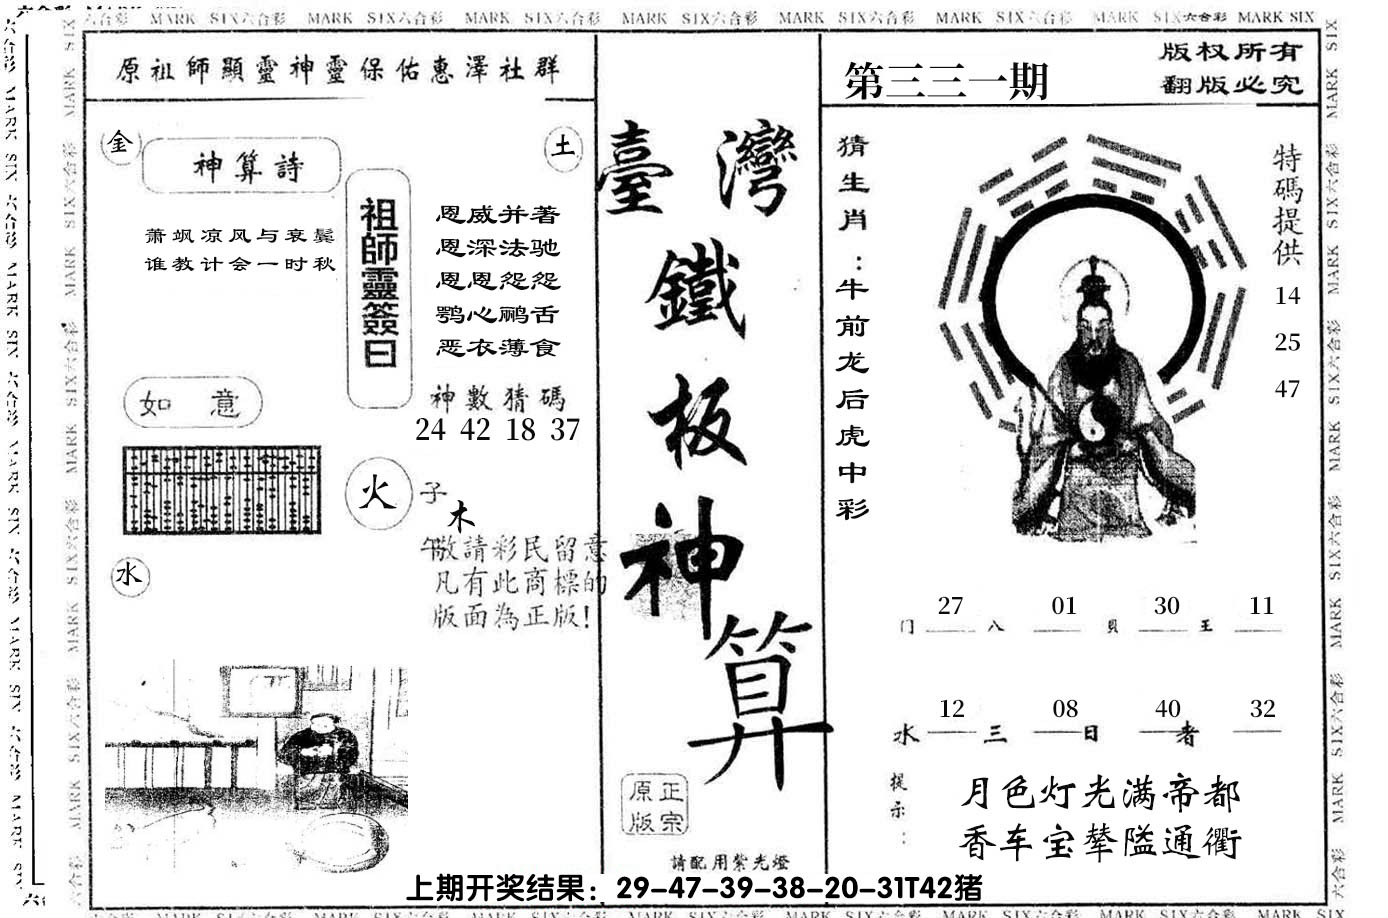 MARK SIX六合彩 MARK SIX六合彩 MARK SIX六合彩 MARK SIX六合彩 MARK SIX六合彩 MARK SIX六合彩 MARK SIX六合彩 MARK SIX
原祖師顯靈神靈保佑惠澤社群
金
土
神算詩
萧飒凉风与衰鬓
谁教计会一时秋
祖師靈簽曰
恩威并著
恩深法驰
恩恩怨怨
鹗心鹂舌
恶衣薄食
神數猜碼
24 42 18 37
如 意
火
子
木
午
水
敬請彩民留意
凡有此商標的
版面為正版!
臺灣
鐵
板
神
算
正宗
原版
請配用紫光燈
第三三一期
版权所有
翻版必究
猜生肖:牛前龙后虎中彩
特碼提供
14
25
47
27 01 30 11
门 八 貝 王
12 08 40 32
水 三 日 者
提示:
月色灯光满帝都
香车宝辇隘通衢
上期开奖结果：29-47-39-38-20-31T42猪